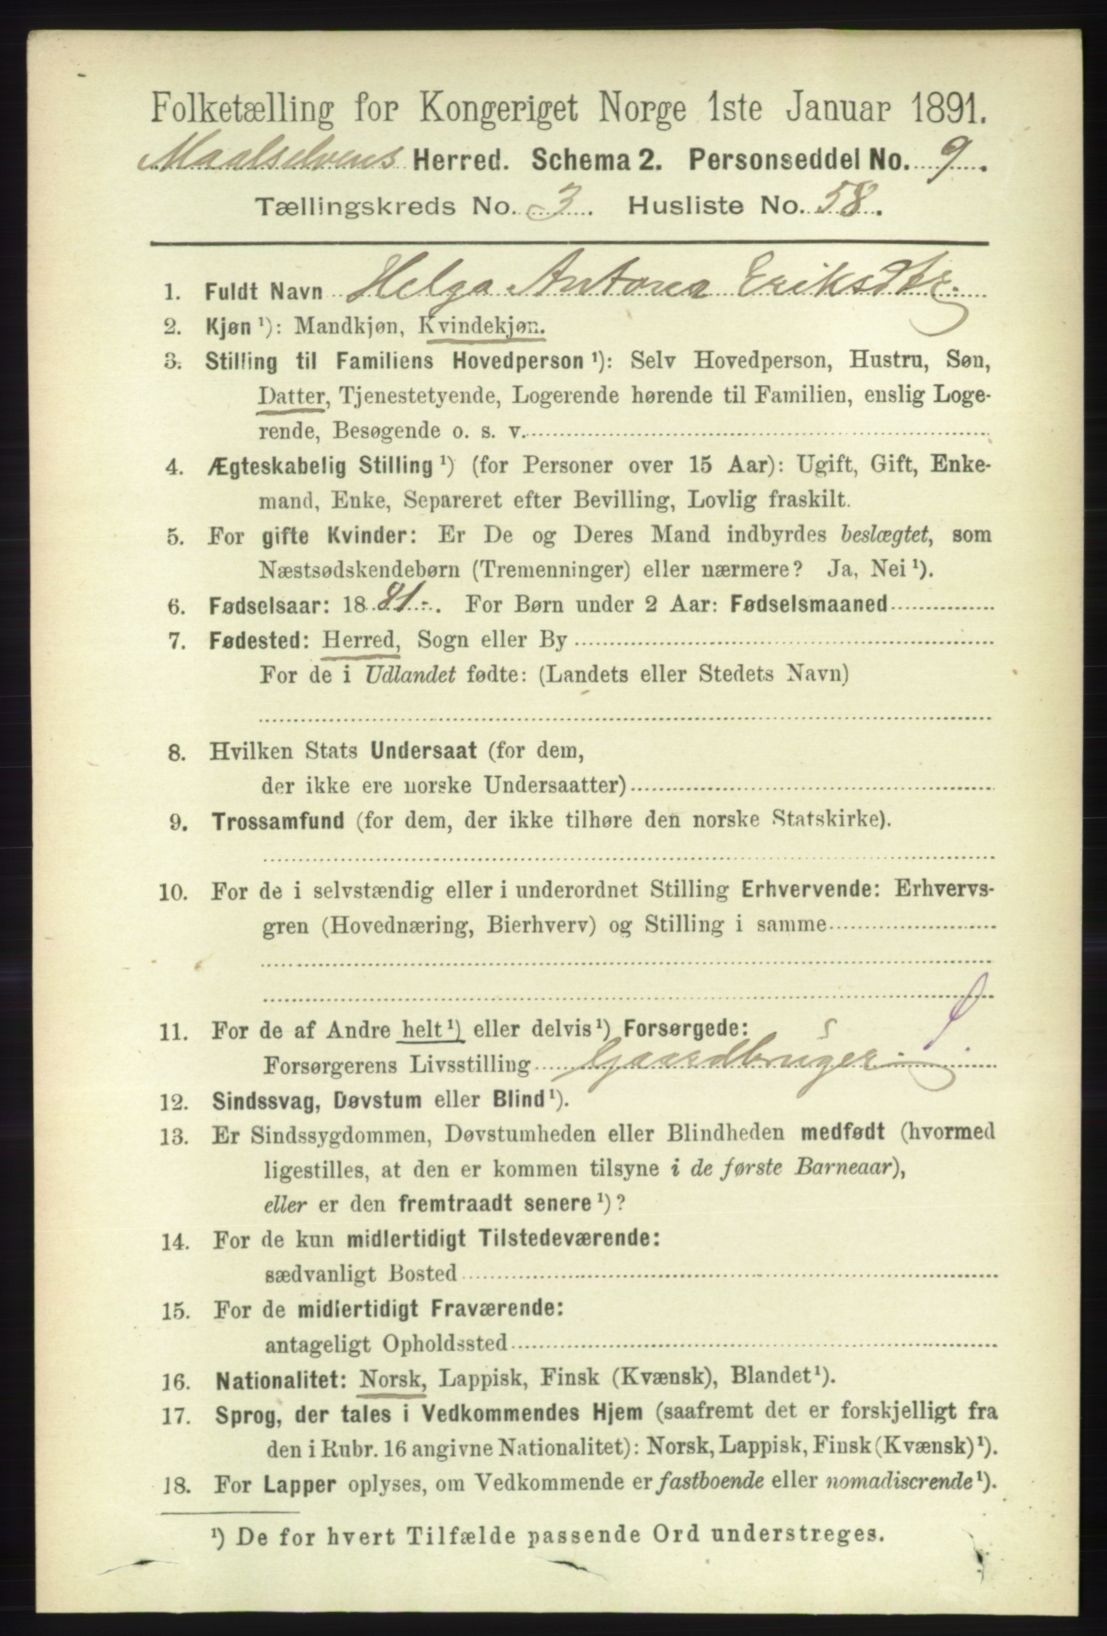 Folketælling for Kongeriget Norge 1ste Januar 1891.
Maalselvens Herred. Schema 2. Personseddel No. 9.
Tællingskreds No. 3. Husliste No. 58.
1. Fuldt Navn Helga Antona Eriksdtr.
2. Kjøn ¹): Mandkjøn, Kvindekjøn.
3. Stilling til Familiens Hovedperson ¹): Selv Hovedperson, Hustru, Søn,
Datter, Tjenestetyende, Logerende hørende til Familien, enslig Loge-
rende, Besøgende o. s. v.
4. Ægteskabelig Stilling ¹) (for Personer over 15 Aar): Ugift, Gift, Enke-
mand, Enke, Separeret efter Bevilling, Lovlig fraskilt.
5. For gifte Kvinder: Er De og Deres Mand indbyrdes beslægtet, som
Næstsødskendebørn (Tremenninger) eller nærmere? Ja, Nei ¹).
6. Fødselsaar: 1881. For Børn under 2 Aar: Fødselsmaaned
7. Fødested: Herred, Sogn eller By
For de i Udlandet fødte: (Landets eller Stedets Navn)
8. Hvilken Stats Undersaat (for dem,
der ikke ere norske Undersaatter)
9. Trossamfund (for dem, der ikke tilhøre den norske Statskirke).
10. For de i selvstændig eller i underordnet Stilling Erhvervende: Erhvervs-
gren (Hovednæring, Bierhverv) og Stilling i samme
11. For de af Andre helt ¹) eller delvis ¹) Forsørgede:
Forsørgerens Livsstilling Gaardbruger.
12. Sindssvag, Døvstum eller Blind ¹).
13. Er Sindssygdommen, Døvstumheden eller Blindheden medfødt (hvormed
ligestilles, at den er kommen tilsyne i de første Barneaar),
eller er den fremtraadt senere ¹)?
14. For de kun midlertidigt Tilstedeværende:
sædvanligt Bosted
15. For de midlertidigt Fraværende:
antageligt Opholdssted
16. Nationalitet: Norsk, Lappisk, Finsk (Kvænsk), Blandet ¹).
17. Sprog, der tales i Vedkommendes Hjem (saafremt det er forskjelligt fra
den i Rubr. 16 angivne Nationalitet): Norsk, Lappisk, Finsk (Kvænsk) ¹).
18. For Lapper oplyses, om Vedkommende er fastboende eller nomadiserende ¹).
¹) De for hvert Tilfælde passende Ord understreges.